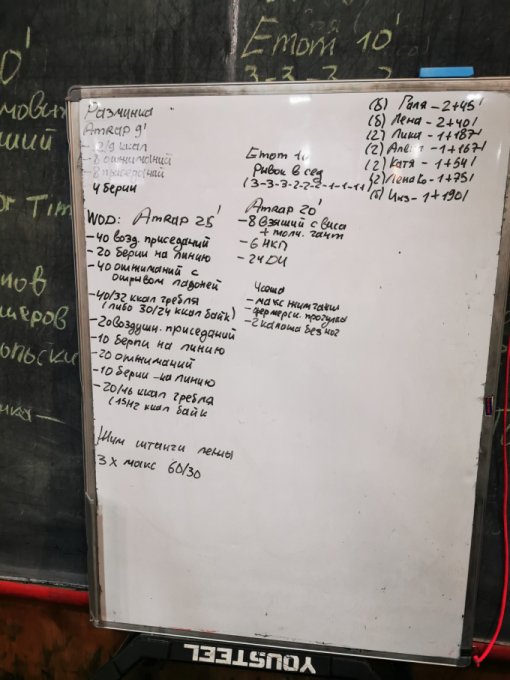 Разминка
AMRAP 9'
- 12/9 ккал
- 8 отжиманий
- 8 приседаний
4 берпи
WOD: AMRAP 25'
- 40 возд. приседаний
- 20 берпи на линию
- 40 отжиманий с
отрывом ладоней
- 40/32 ккал гребля
(либо 30/24 ккал байк)
- 20 воздушн. приседаний
- 10 берпи на линию
- 20 отжиманий
- 10 берпи на линию
- 20/16 ккал гребля
(15/12 ккал байк
Жим штанги лежа
3 x макс 60/30
Emom 10
Рывок в сед
(3-3-3-2-2-2-1-1-1-1)
AMRAP 20'
- 8 взятий с виса
+ толч. гант
- 6 НКП
- 24 DU
- макс жим гантели
- фермерск. прогулка
- 2 каната без ног
Галя - 2+45
Лена - 2+40
(2) Лика - 1+187
(2) - 1+167
(2) Катя - 1+54
(2) Лена Ко - 1+75
- 1+190
Emom 10'
3-3-3
YOUSTEEL